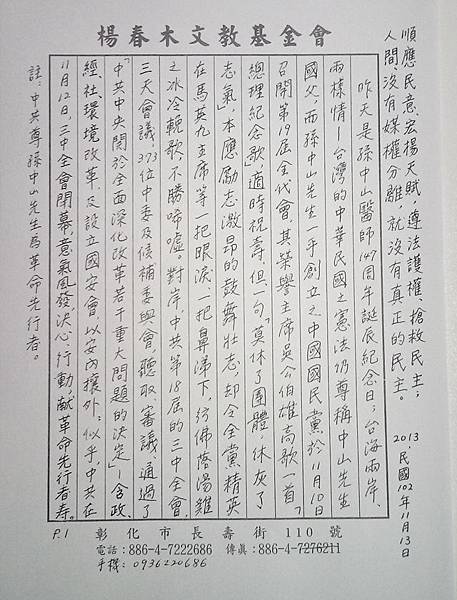 楊春木文教基金會
順應民意、宏楊天賦，遵法護權、搶救民主；
人間、沒有媒權分離，就沒有真正的民主。
2013，民國102年11月13日
昨天是孫中山醫師147周年誕辰紀念日；台海兩岸、
兩樣情－台灣的中華民國之憲法仍尊稱中山先生
國父，而孫中山先生一手創立之中國國民黨於11月10日
召開第19屆全代會，其榮譽主席吳公伯雄高歌一首「
總理紀念歌」適時祝壽，但一句「莫休了團體，休灰了
志氣」，本應勵志激昂的鼓舞壯志，却令全黨精英
在馬英九主席等一把眼淚、一把鼻涕下，彷彿蔭湯雞
之冰冷輓歌、不勝唏噓。對岸，中共第18屆的三中全會，
三天會議、373位中委及候補委與會聽取、審議、通過了
「中共中央関於全面深化改革若干重大問題的決定」－含政、
經、社、環境改革，及設立國安會，以安內攘外：似乎，中共在
11月12日，三中全會閉幕，意氣風發，決心、行動，献革命先行者壽。
註：中共尊孫中山先生為革命先行者。
P.1
彰化市長壽街110號
電話：886-4-7222686 傳真：886-4-7276211
手機：0936220686